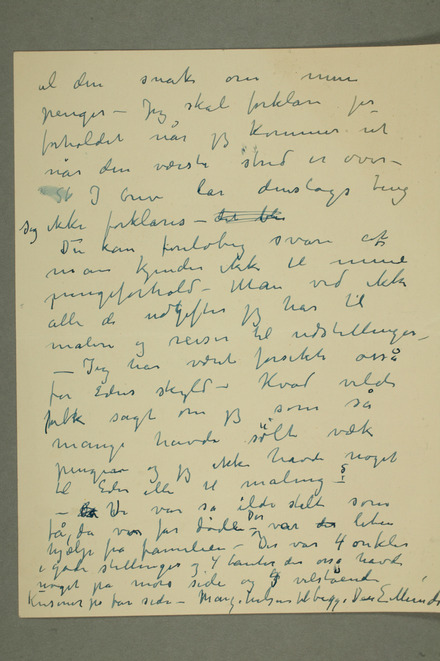 al den snak om mine
penger – Jeg skal forklare jer
forholdet når jeg kommer ut
når den værste strid er over –
I brev lar denslags ting
sig ikke forklares –
Du kan foreløbig svare at
man kjender ikke til mine
pengeforhold – Man ved ikke
alle de udgifter jeg har til
malere og reiser til udstillinger –
– Jeg har været forsiktig også
for Eders skyld – Hvad vilde
folk sagt om jeg som så
mange havde sølt væk
pengene og jeg ikke havde noget
til Eder eller til maling –
– Vi var så ilde stelt som
få, da vor far døde – Der var liten
hjælp fra familien – Der var 4 onkler
i gode stillinger og 4 tanter der også havde
noget på mors side og velstående
Kusiner på fars side – Mang. hilsner til begge. Din E. Munch